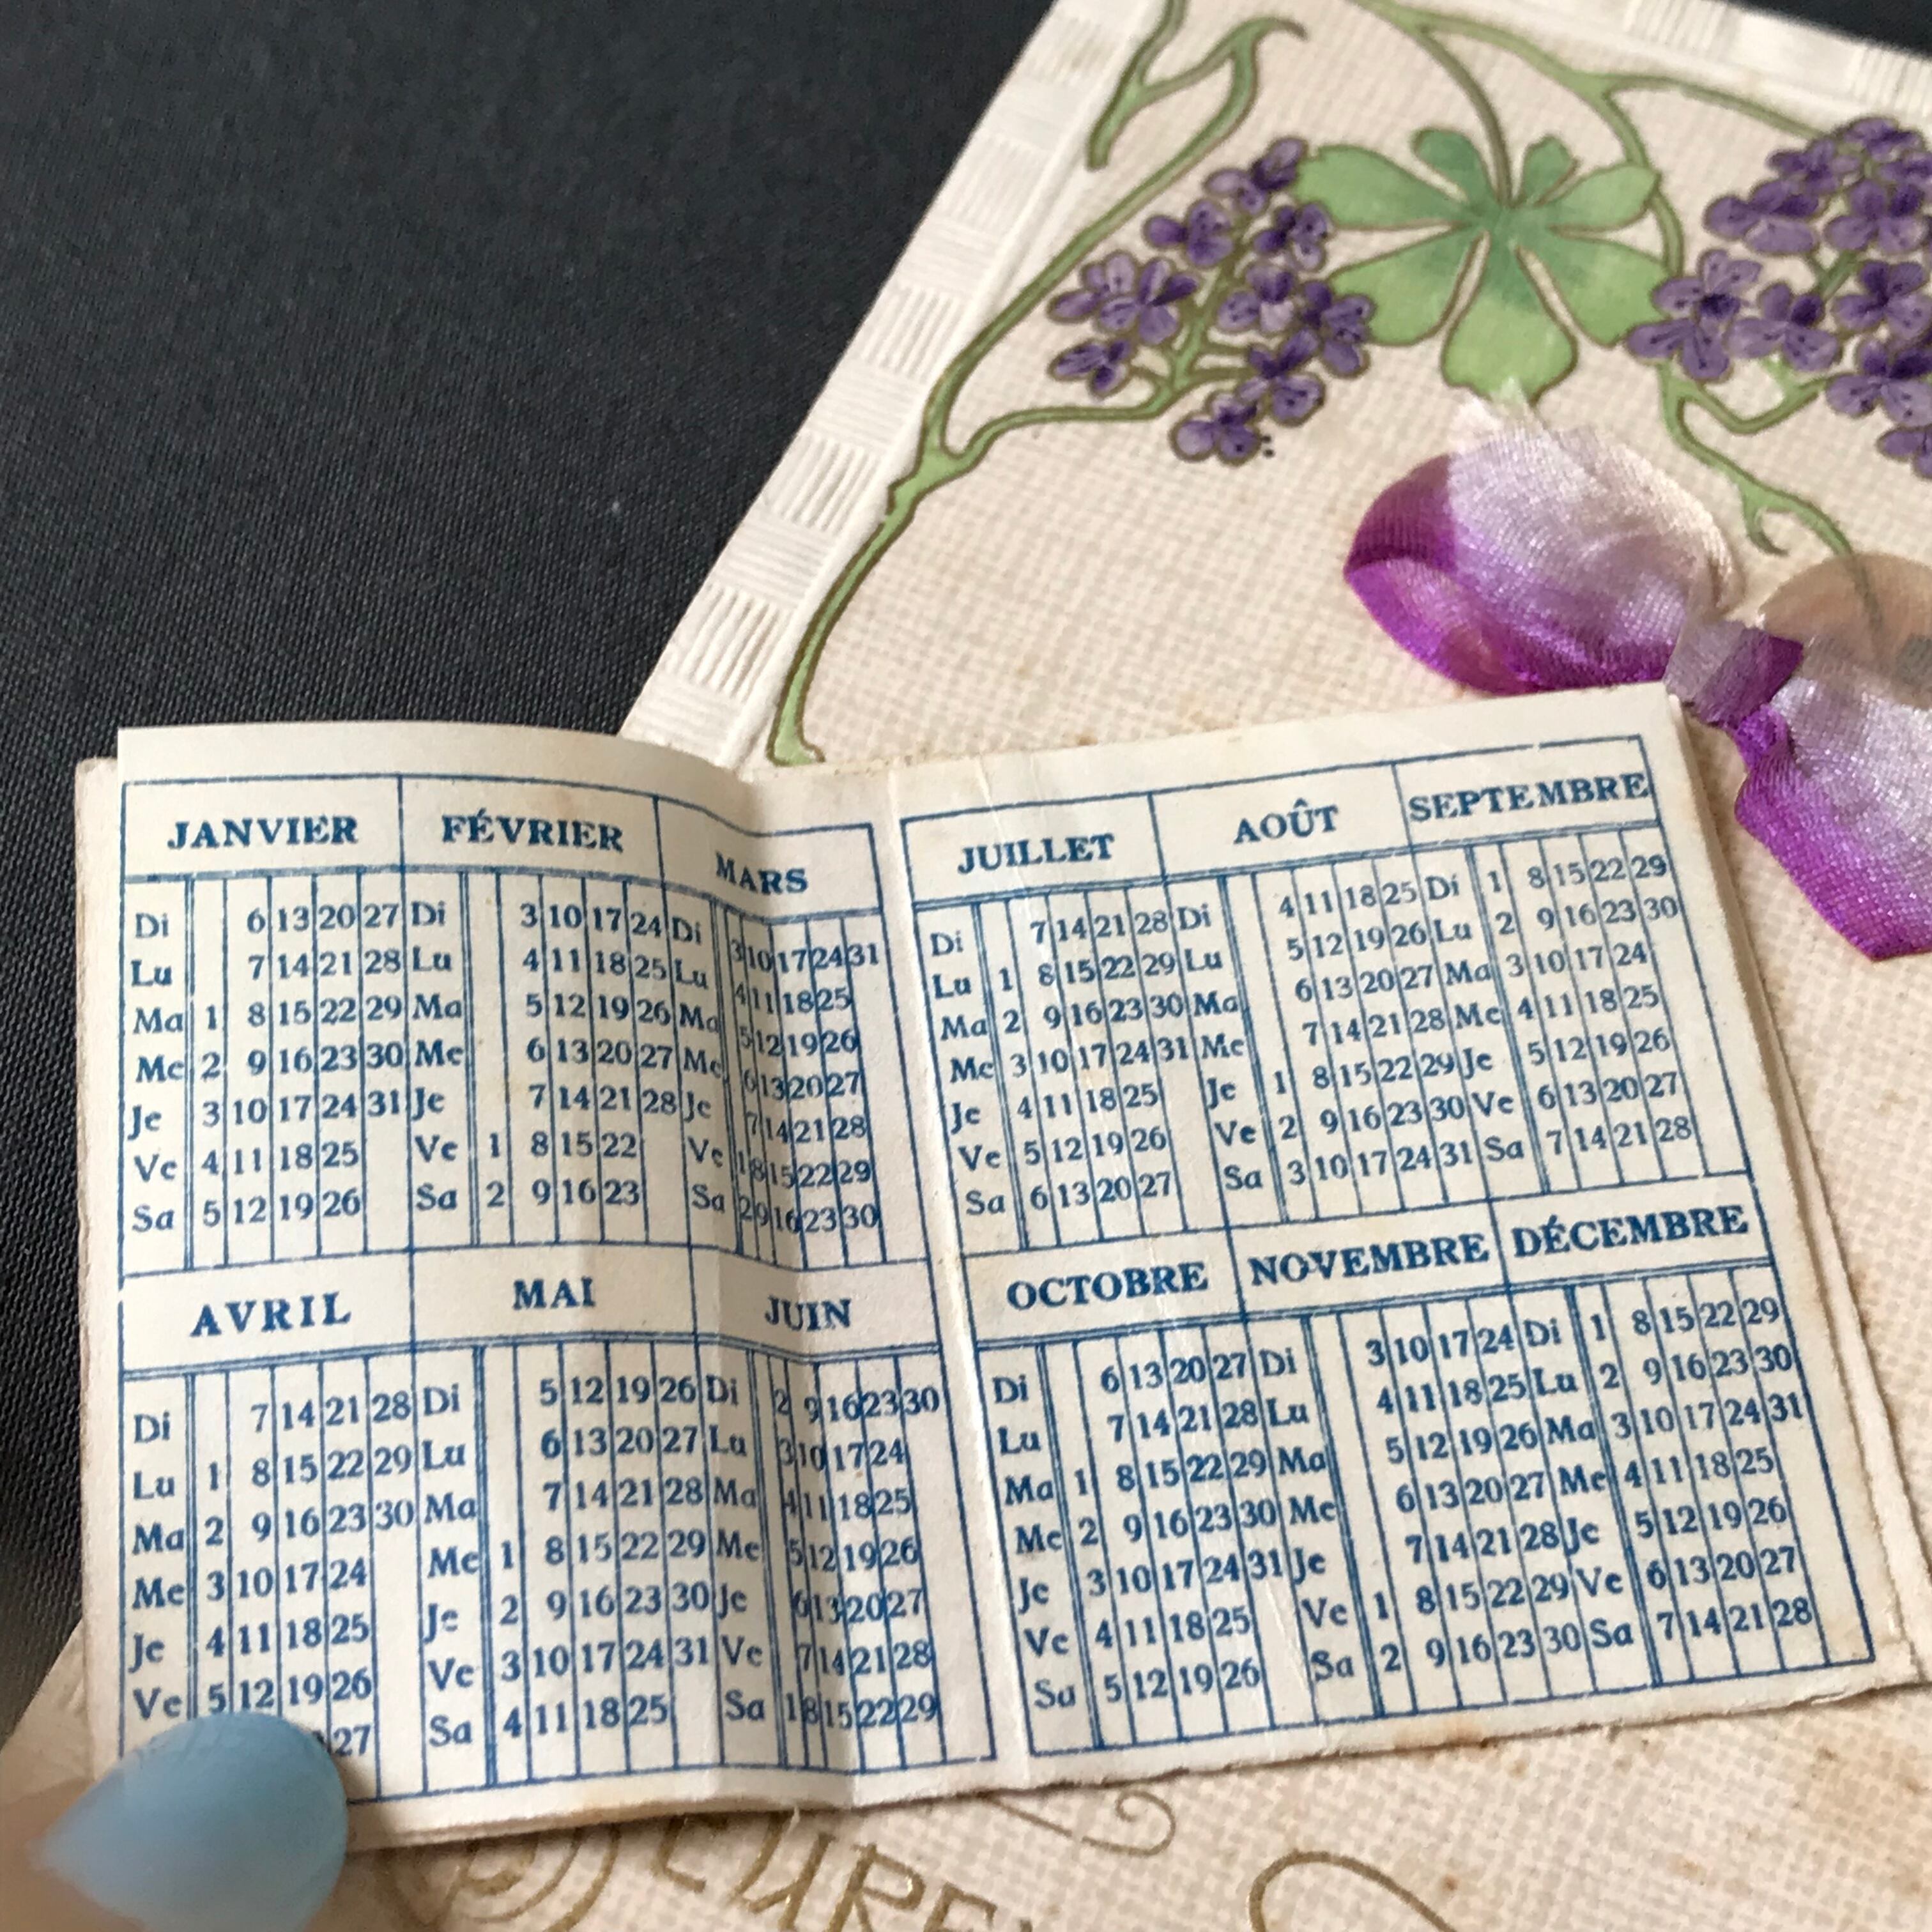 JANVIER FÉVRIER MARS
Di 6 13 20 27 Di 3 10 17 24 Di 3 10 17 24 31
Lu 7 14 21 28 Lu 4 11 18 25 Lu 4 11 18 25
Ma 1 8 15 22 29 Ma 5 12 19 26 Ma 5 12 19 26
Me 2 9 16 23 30 Me 6 13 20 27 Me 6 13 20 27
Je 3 10 17 24 31 Je 7 14 21 28 Je 7 14 21 28
Ve 4 11 18 25 Ve 1 8 15 22 Ve 1 8 15 22 29
Sa 5 12 19 26 Sa 2 9 16 23 Sa 2 9 16 23 30
AVRIL MAI JUIN
Di 7 14 21 28 Di 5 12 19 26 Di 2 9 16 23 30
Lu 1 8 15 22 29 Lu 6 13 20 27 Lu 3 10 17 24
Ma 2 9 16 23 30 Ma 7 14 21 28 Ma 4 11 18 25
Me 3 10 17 24 Me 1 8 15 22 29 Me 5 12 19 26
Je 4 11 18 25 Je 2 9 16 23 30 Je 6 13 20 27
Ve 5 12 19 26 Ve 3 10 17 24 31 Ve 7 14 21 28
27 Sa 4 11 18 25 Sa 1 8 15 22 29
JUILLET AOÛT SEPTEMBRE
Di 7 14 21 28 Di 4 11 18 25 Di 1 8 15 22 29
Lu 1 8 15 22 29 Lu 5 12 19 26 Lu 2 9 16 23 30
Ma 2 9 16 23 30 Ma 6 13 20 27 Ma 3 10 17 24
Me 3 10 17 24 31 Me 7 14 21 28 Me 4 11 18 25
Je 4 11 18 25 Je 1 8 15 22 29 Je 5 12 19 26
Ve 5 12 19 26 Ve 2 9 16 23 30 Ve 6 13 20 27
Sa 6 13 20 27 Sa 3 10 17 24 31 Sa 7 14 21 28
OCTOBRE NOVEMBRE DÉCEMBRE
Di 6 13 20 27 Di 3 10 17 24 Di 1 8 15 22 29
Lu 7 14 21 28 Lu 4 11 18 25 Lu 2 9 16 23 30
Ma 1 8 15 22 29 Ma 5 12 19 26 Ma 3 10 17 24 31
Me 2 9 16 23 30 Me 6 13 20 27 Me 4 11 18 25
Je 3 10 17 24 31 Je 7 14 21 28 Je 5 12 19 26
Ve 4 11 18 25 Ve 1 8 15 22 29 Ve 6 13 20 27
Sa 5 12 19 26 Sa 2 9 16 23 30 Sa 7 14 21 28